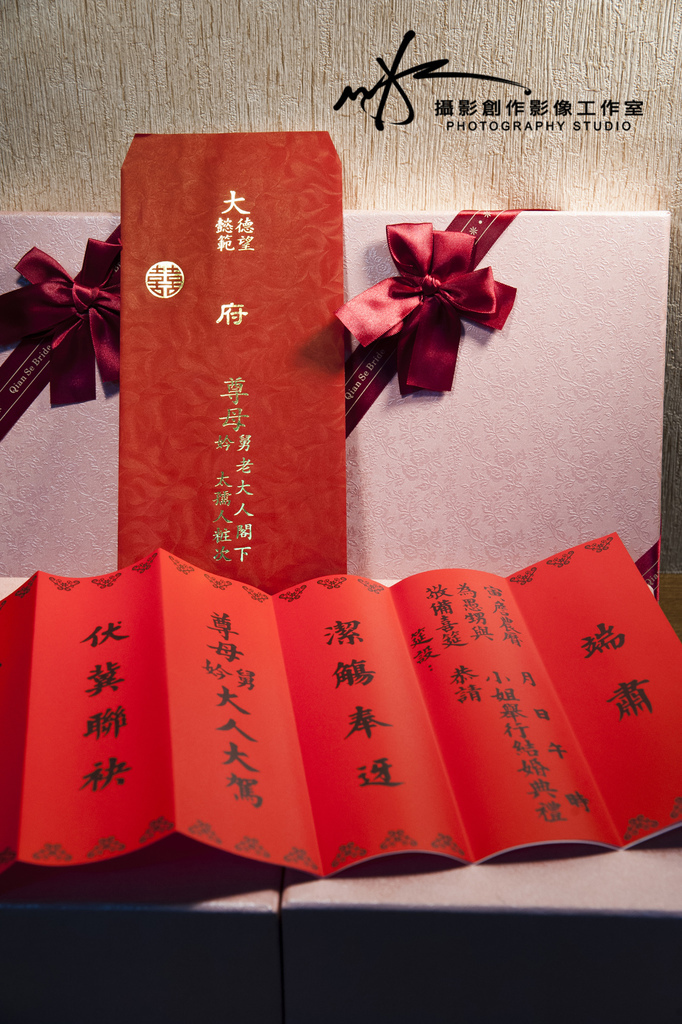 攝影創作影像工作室
PHOTOGRAPHY STUDIO
大
德望
懿範
府
尊母
舅老大人閣下
妗太孺人粧次
囍
Qian Se Bride
Qian Se Brid
瑞肅
月 日 午 時
為愚甥與 小姐舉行結婚典禮
敬備喜筵 恭請
筵設：
潔觴奉迓
尊母
舅
妗
大人大駕
伏冀聯袂